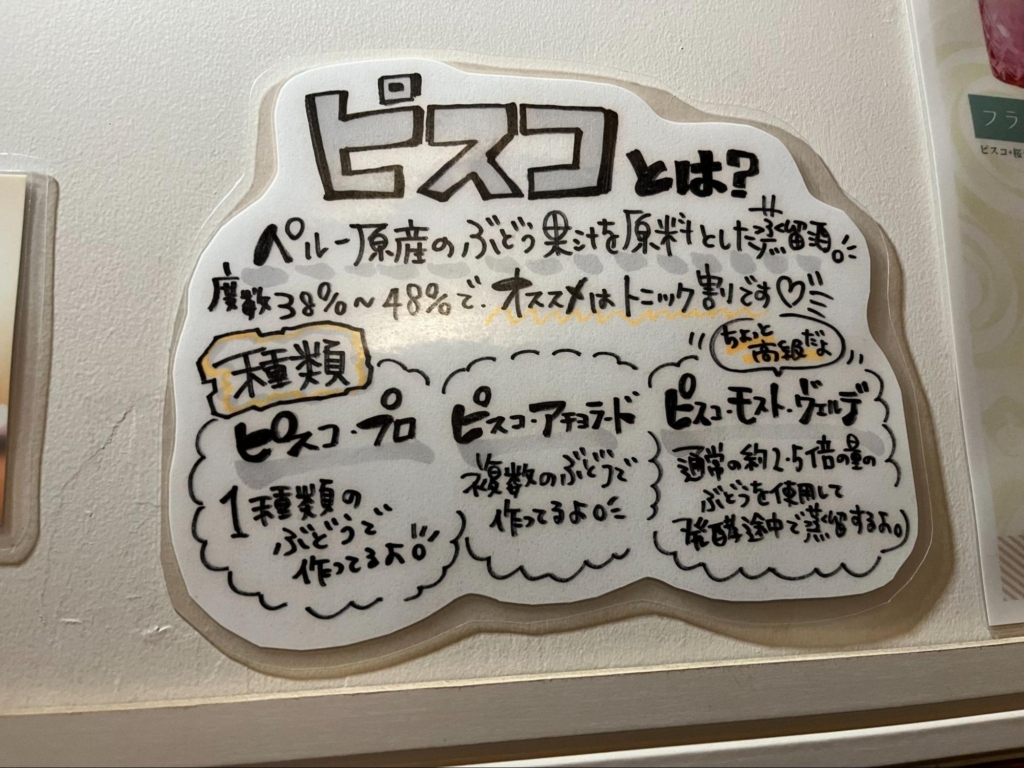 ピスコとは?
ペルー原産のぶどう果汁を原料とした蒸留酒。
度数38%~48%で、オススメはトニック割りです♡
種類
ピスコ・プロ
1種類の
ぶどうで
作ってるよ。
ピスコ・アチョラード
複数のぶどうで
作ってるよ。
ちょっと
高級だよ
ピスコ・モスト・ヴェルデ
通常の約2.5倍の量の
ぶどうを使用して
発酵途中で蒸留するよ。
フラ
ピスコ+桜